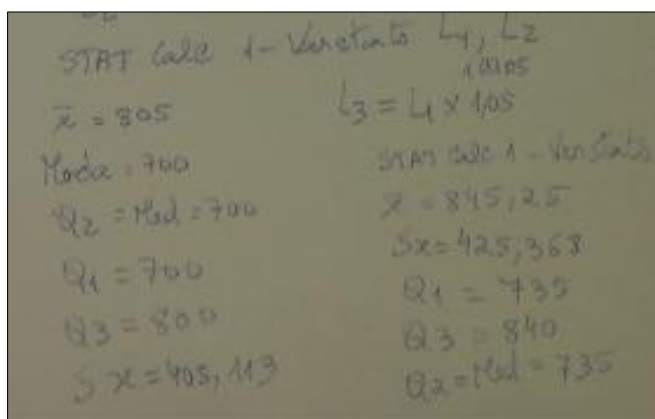 STAT Calc 1-VarStats L1, L2
x̄ = 805
Moda = 700
Q2 = Med = 700
Q1 = 700
Q3 = 800
Sx = 405,113
L3 = L1 x 1,05
STAT Calc 1-VarStats
x̄ = 845,25
Sx = 425,368
Q1 = 735
Q3 = 840
Q2 = Med = 735